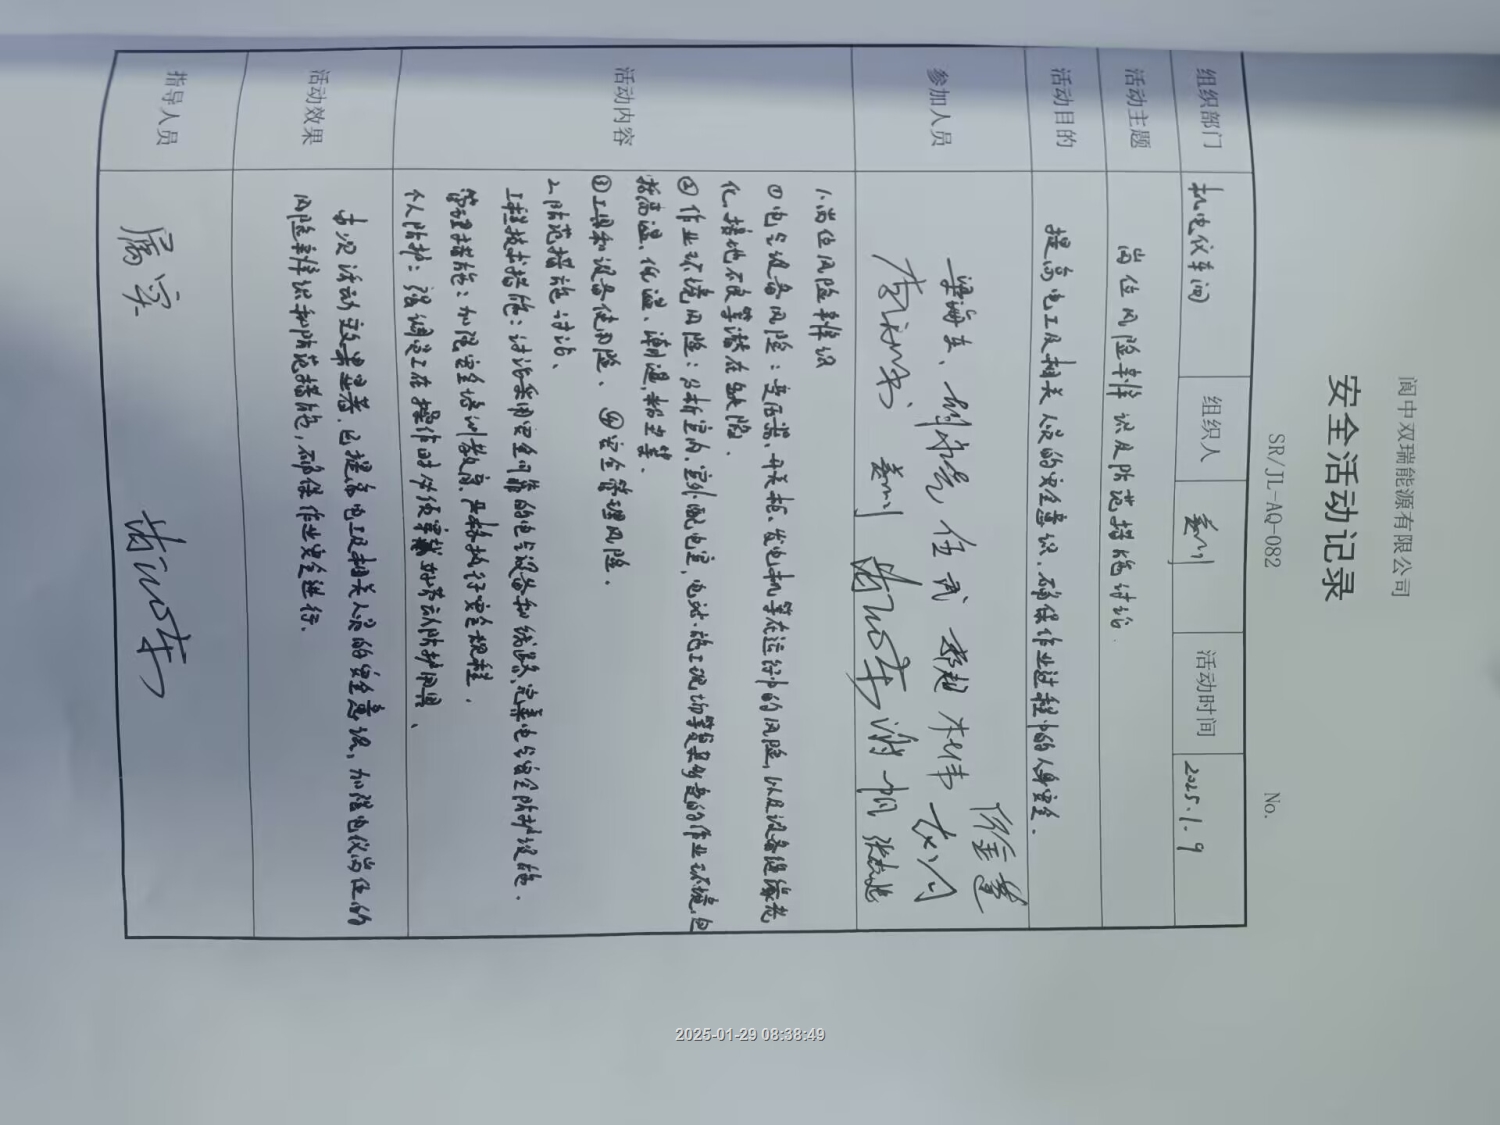 阆中双瑞能源有限公司
安全活动记录
SR/JL-AQ-082 No.
组织部门 机电仪车间 组织人 活动时间 2025.1.9
活动主题 岗位风险辨识及防范措施讨论.
活动目的 提高电工及相关人员的安全意识、确保作业过程中的人身安全.
参加人员 梁海东、 任武 郑超
张志
活动内容
1.岗位风险辨识
①电气设备风险：变压器、开关柜、发电机等在运行中的风险,以及设备绝缘老
化、接地不良等潜在缺陷.
②作业环境风险：分析室内、室外配电室,电站.施工现场等复杂多变的作业环境,包
括高温、低温、潮湿,粉尘等.
③工具和设备使用险、④安全管理风险.
2.防范措施讨论、
工程技术措施：讨论采用安全可靠的电气设备和线路、完善电气安全防护设施.
管理措施：加强安全培训教育、严格执行安全规程.
个人防护：强调员工在操作时必须穿戴好劳动防护用具、
活动效果
本次活动效果显著,已提高电工及相关人员的安全意识,加强电仪岗位的
风险辨识和防范措施,确保作业安全进行.
指导人员 属实
2025-01-29 08:38:49